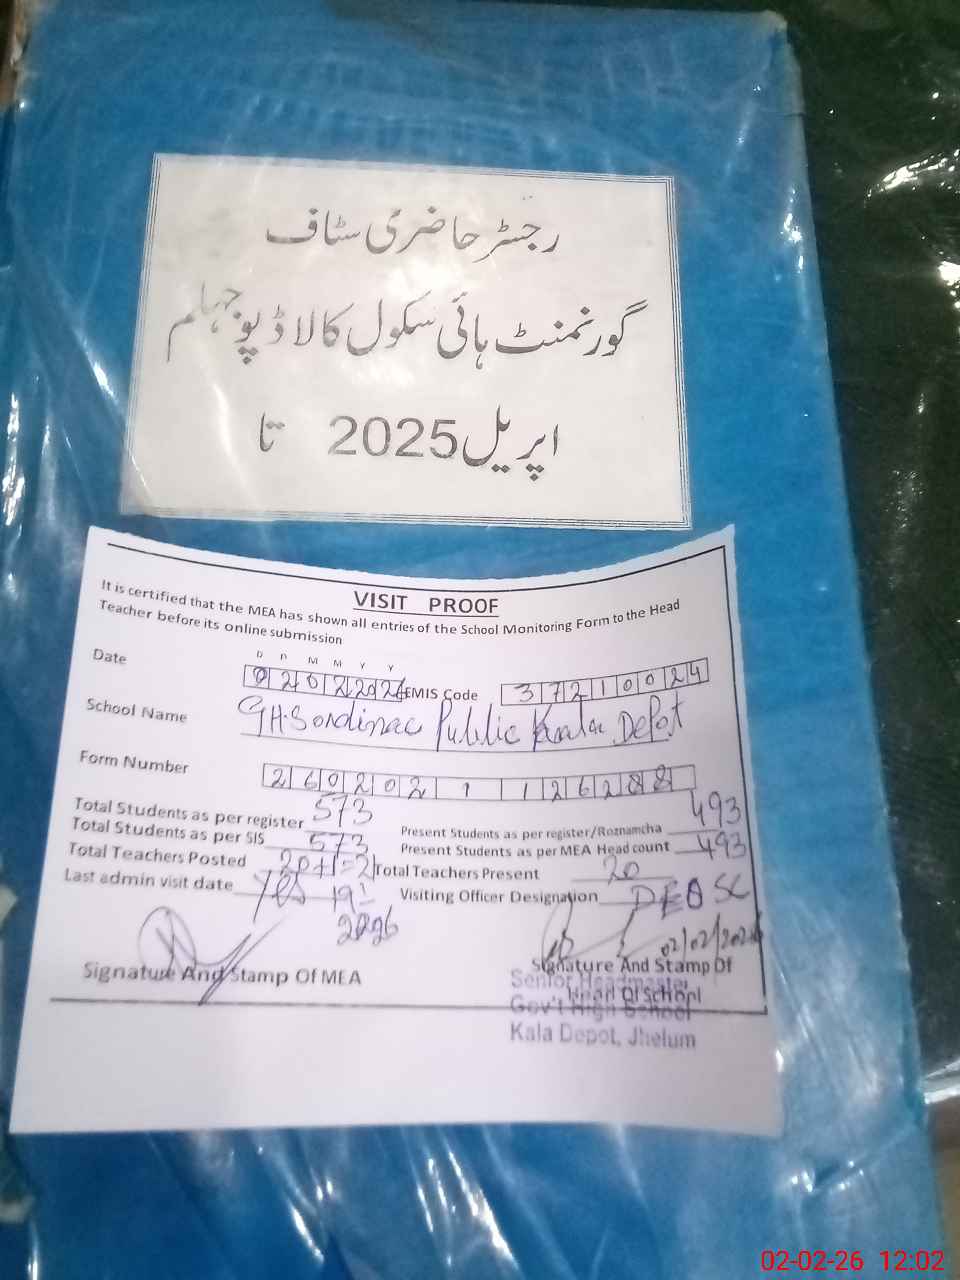 رجسٹر حاضری سٹاف
گورنمنٹ ہائی سکول کالا ڈپو جہلم
اپریل 2025 تا
VISIT PROOF
It is certified that the MEA has shown all entries of the School Monitoring Form to the Head
Teacher before its online submission
D D M M Y Y
Date 020226 EMIS Code 37210024
School Name G.H.S Public Kala Depot
Form Number 260202 1 126288
Total Students as per register 573 Present Students as per register/Roznamcha 493
Total Students as per SIS 573 Present Students as per MEA Head count 493
Total Teachers Posted 20+1=21 Total Teachers Present 20
Last admin visit date Yes 19-1 2026 Visiting Officer Designation DEO SC
02/02/2026
Signature And Stamp Of MEA Signature And Stamp Of
Head Of School
Senior Headmaster
Gov't High School
Kala Depot, Jhelum
02-02-26 12:02